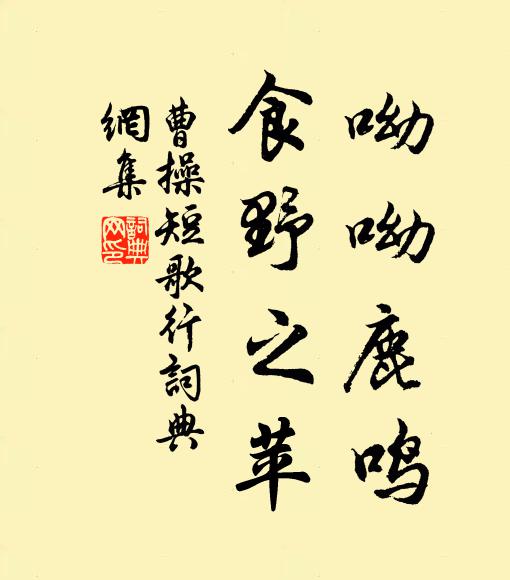 呦呦鹿鸣
食野之苹
曹操短歌行詞典
網集
詞典
网印